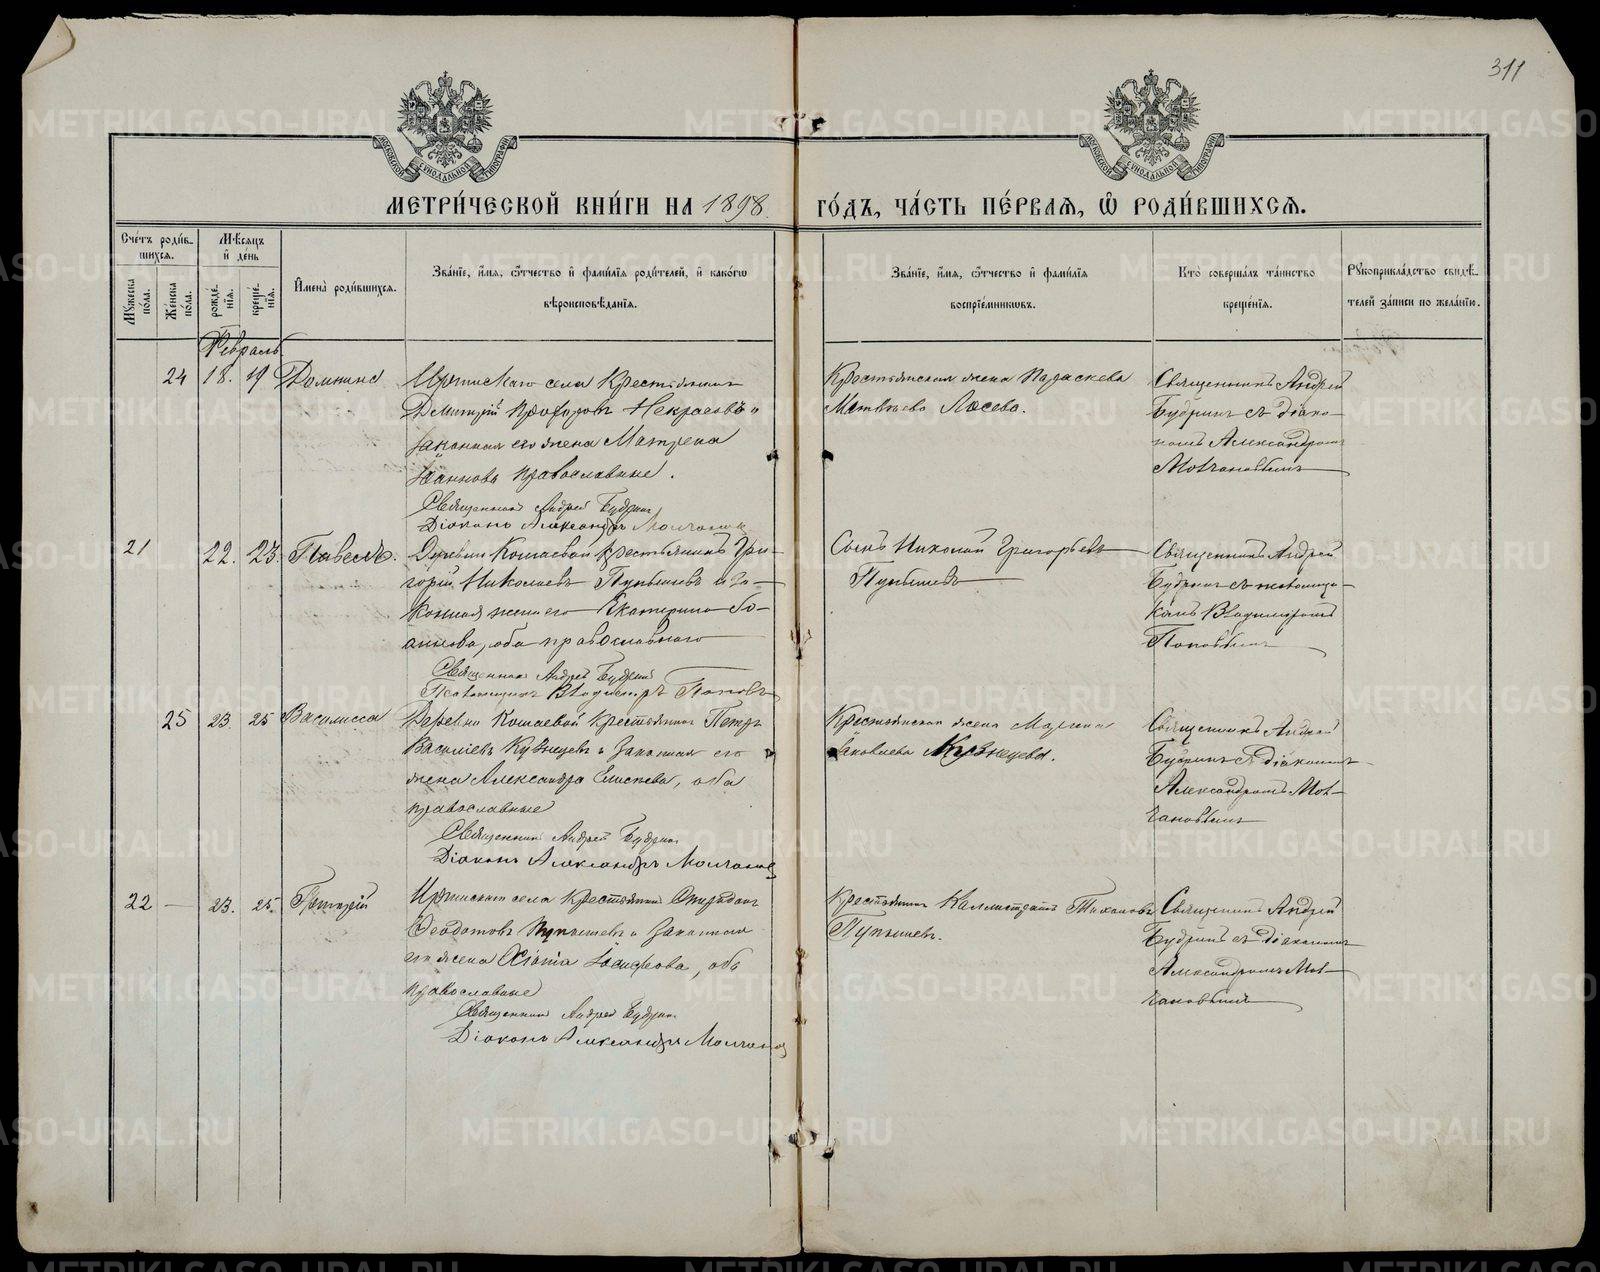 311
МОСКОВСКОЙ СѴНОДАЛЬНОЙ ТИПОГРАФІИ
МОСКОВСКОЙ СѴНОДАЛЬНОЙ ТИПОГРАФІИ
МЕТРИ́ЧЕСКОЙ КНИ́ГИ НА 1898 ГО́ДЪ, ЧА́СТЬ ПЕ́РВАЯ, Ѽ РОДИ́ВШИХСЯ.
Сче́тъ роди́в-
шихся.
Мꙋ́жеска по́ла.
Же́нска по́ла.
Мѣ́сяцъ
и҆ де́нь
рожде́-
нїя.
креще́-
нїя.
И҆мена̀ роди́вшихся.
Зва́нїе, и҆́мя, ѻ҆́тчество и҆ фами́лїя роди́телей, и҆ како́гѡ
вѣроисповѣ́данїя.
Зва́нїе, и҆́мя, ѻ҆́тчество и҆ фами́лїя
воспрїе́мникѡвъ.
Кто̀ соверша́лъ та́инство
креще́нїя.
Рꙋкоприкла́дство свидѣ́-
телей за́писи по жела́нїю.
Февраль
24 18. 19 Домнина
села Крестьянинъ
Димитрій Некрасовъ и
законная его жена Матрона
Іоаннова православные.
Священникъ Андрей Будринъ
Діаконъ Александръ Молчановъ
Крестьянская жена Параскева
Матвѣева Лосева.
Священникъ Андрей
Будринъ съ діако-
номъ Александромъ
Молчановымъ
21 22. 23. Павелъ.
Деревни Кошаевой крестьянинъ Гри-
горій Николаевъ Пупышевъ и за-
конная жена его Екатерина Іо-
аннова, оба православнаго
Священникъ Андрей Будринъ
Псаломщикъ Владиміръ Поповъ
Сынъ Николай Григорьевъ
Пупышевъ
Священникъ Андрей
Будринъ съ псаломщи-
комъ Владиміромъ
Поповымъ
25 23. 25 Василисса
Деревни Кошаевой крестьянинъ Петръ
Василіевъ Кузнецевъ и законная его
жена Александра Елисѣева, оба
православные
Священникъ Андрей Будринъ
Діаконъ Александръ Молчановъ
Крестьянская жена
Іаковлева Кузнецева.
Священникъ Андрей
Будринъ съ діакономъ
Александромъ Мол-
чановымъ
22 — 23. 25. Григорій
села крестьянинъ Спиридонъ
Ѳеодотовъ Пупышевъ и законная
его жена Хіонія Іосифова, оба
православные
Священникъ Андрей Будринъ
Діаконъ Александръ Молчановъ
Крестьянинъ Каллистратъ Тихоновъ
Пупышевъ.
Священникъ Андрей
Будринъ съ діакономъ
Александромъ Мол-
чановымъ
METRIKI.GASO-URAL.RU